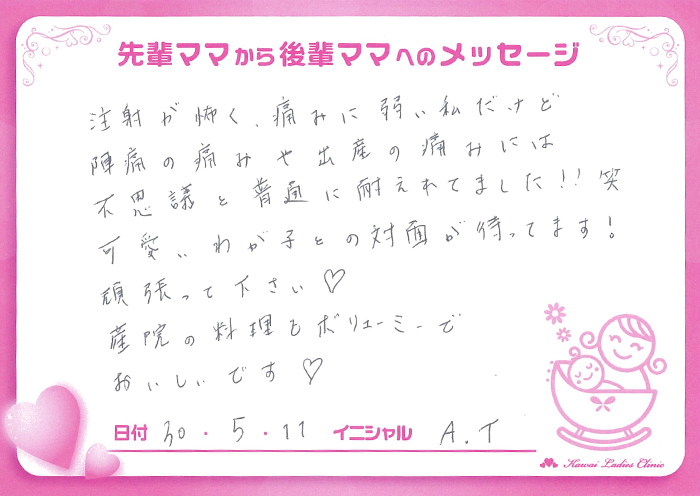 先輩ママから後輩ママへのメッセージ
注射が怖く、痛みに弱い私だけど
陣痛の痛みや出産の痛みには
不思議と普通に耐えれてました!!笑
可愛いわが子との対面が待ってます!
頑張って下さい♡
産院の料理もボリューミーで
おいしいです♡
日付 30・5・11 イニシャル A.T
Kawai Ladies Clinic